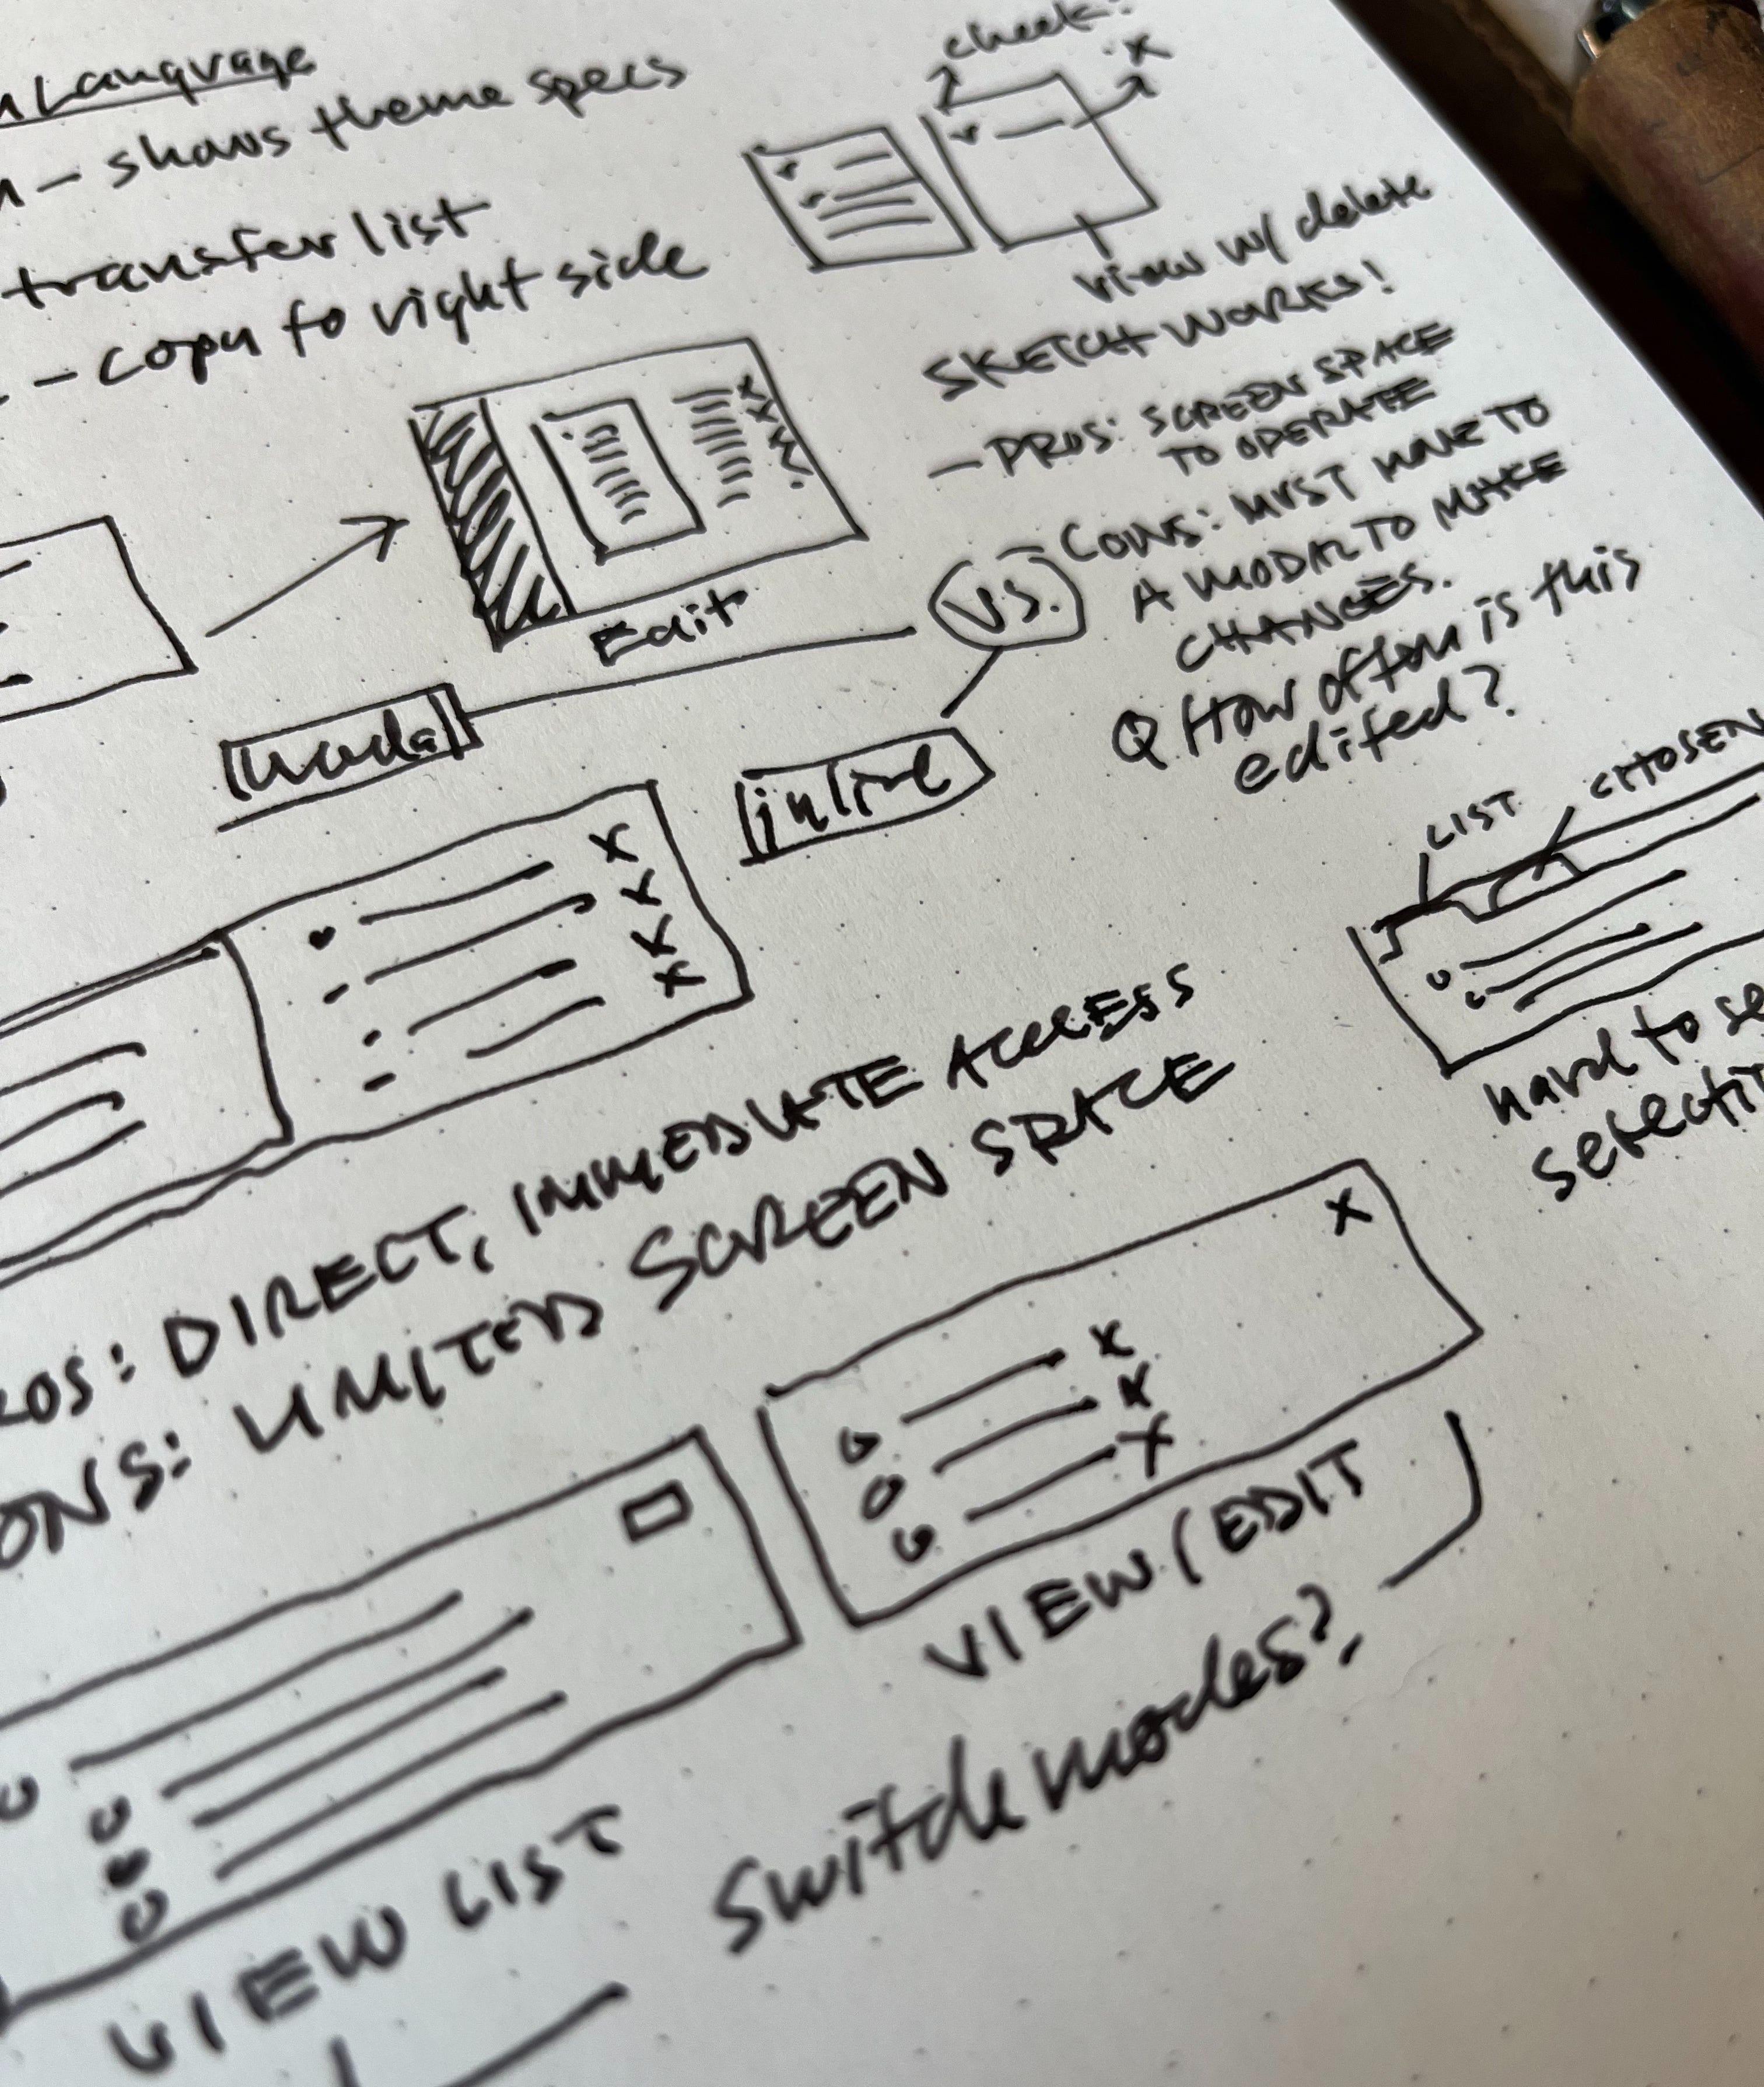 Language
- shows theme specs
transfer list
- copy to right side
check?
x
view w/ delete
SKETCH WORKS!
- PROS: SCREEN SPACE
TO OPERATE
- CONS: MUST HAVE TO
A MODAL TO MAKE
CHANGES.
Q How often is this
edited?
Edit
VS.
modal
inline
LIST
CHOSEN
hard to se
selecti
ROS: DIRECT, IMMEDIATE ACCESS
ONS: LIMITED SCREEN SPACE
VIEW / EDIT
VIEW LIST
switch modes?